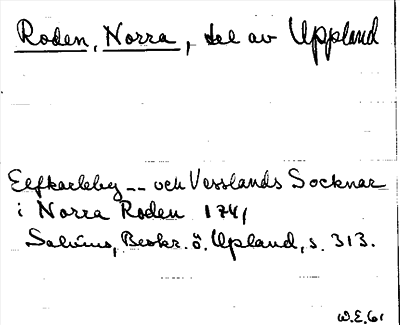 Roden, Norra, del av Uppland
Elfkarleby -- och Vesslands Socknar
i Norra Roden 1741
Salvius, Beskr. ö. Upland, s. 313.
W.E.61